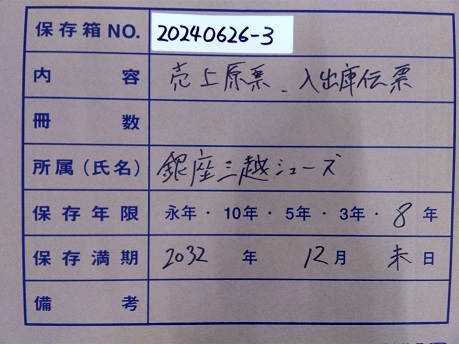 保存箱NO. 20240626-3
内容 売上原票、入出庫伝票
冊数
所属(氏名) 銀座三越シューズ
保存年限 永年・10年・5年・3年・8年
保存満期 2032年 12月 末日
備考